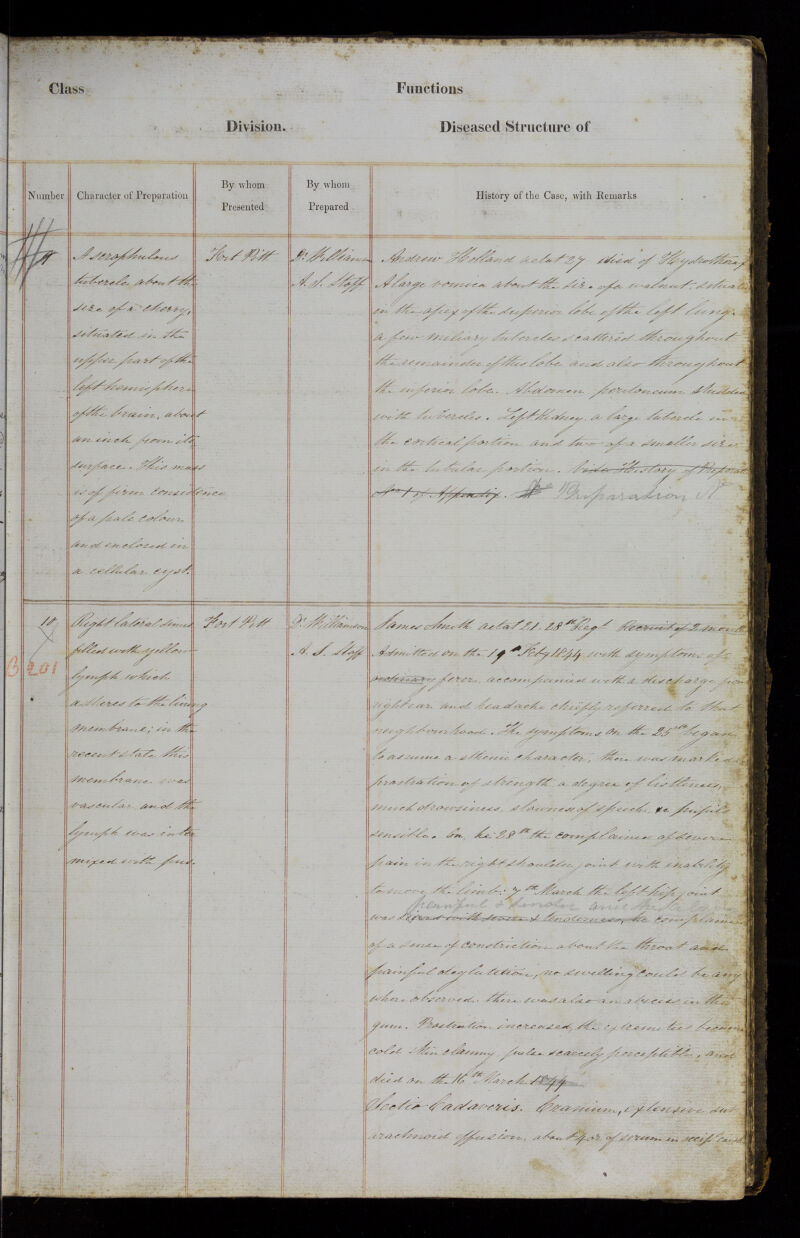 Class
Functions
Division.
Diseased Structure of
Number
Character of Preparation
By whom
Presented
By whom
Prepared
History of the Case, with Remarks
A scrophulous
tubercle about the
size of a cherry,
situated in the
upper part of the
left hemisphere
of the brain, about
an inch from its
surface. This mass
is of firm consistence
of a pale colour
and enclosed in
a cellular cyst.
Fort Pitt
Dr. Williamson
A. S. Staff
Andrew Holland aetat 27 died of Hydrothorax
A large vomica about the size of a walnut situated
in the apex of the superior lobe of the left lung.
a few miliary tubercles scattered throughout
the remainder of this lobe and also throughout
the inferior lobe. Abdomen peritoneum studded
with tubercles. Left Kidney a large tubercle in
the cortical portion and two of a smaller size
in the tubular portion. History of
of Appendix. Preparation
10
B 201
Right lateral sinus
filled with yellow
lymph which
adheres to the lining
membrane; in the
recent state this
membrane was
vascular and the
lymph was inter
mixed with pus.
Fort Pitt
Dr. Williamson
A. S. Staff
James Smith aetat 21. 28th Regt. Recruit of 2 months
Admitted on the 19th Feby 1844 with symptoms of
ordinary fever accompanied with a discharge from
right ear and headache chiefly referred to that
neighbourhood. The symptoms on the 25th began
to assume a sthenic character, there was marked
prostration of strength a degree of listlessness
much drowsiness, slowness of speech & pupils
sensible. On the 28th he complained of severe
pain in the right shoulder joint with inability
to move the limb. 7th March the left hip joint
painful & tender and he
was with & tenderness, he complained
of a sense of constriction about the throat and
painful deglutition, no swelling could be any
where observed there was also an abscess in the
gum. Prostration increased, the extremities became
cold skin clammy pulse scarcely perceptible, and
died on the 16th March 1844
Sectio Cadaveris. Cranium, extensive sub
arachnoid effusion, about 4 oz of serum in